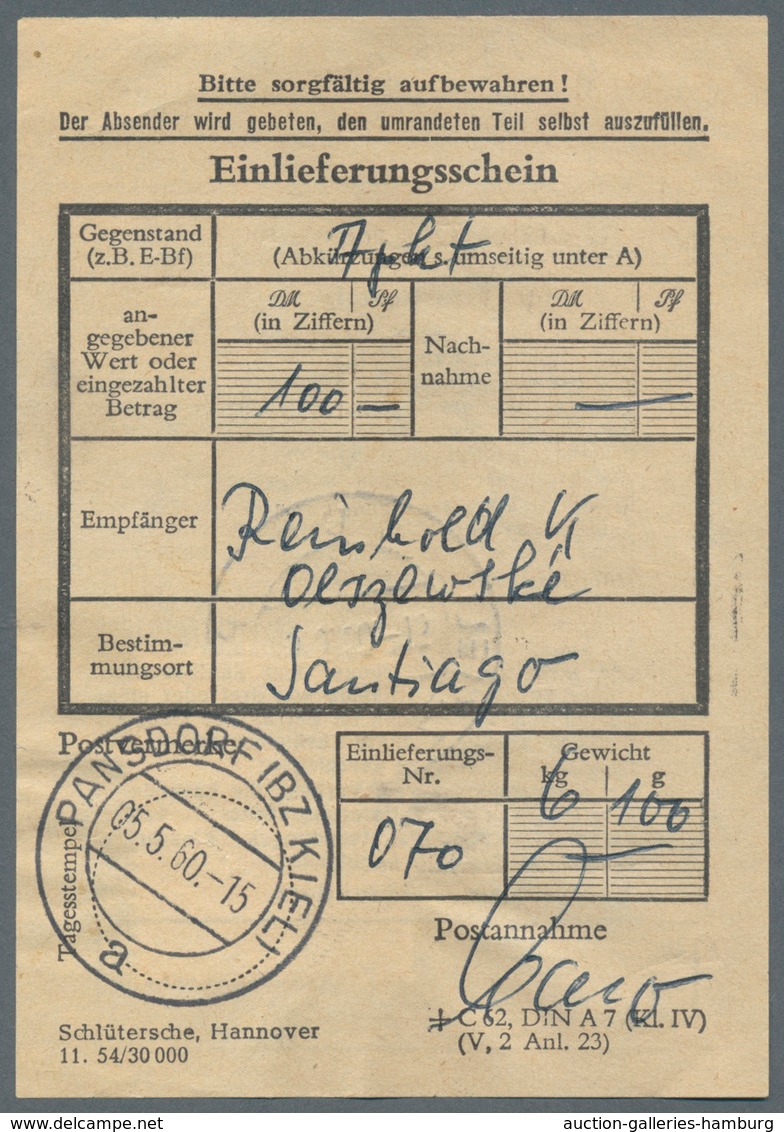 Bitte sorgfältig aufbewahren!
Der Absender wird gebeten, den umrandeten Teil selbst auszufüllen.
Einlieferungsschein
Gegenstand
(z.B. E-Bf)
(Abkürzungen s. umseitig unter A)
an-
gegebener
Wert oder
eingezahlter
Betrag
DM Pf
(in Ziffern)
100 —
Nach-
nahme
DM Pf
(in Ziffern)
—
Empfänger
Reinhold
Olszewski
Bestim-
mungsort
Santiago
Postvermerke
Tagesstempel
PANSDORF (BZ KIEL)
05.5.60.-15
a
Einlieferungs-
Nr.
070
Gewicht
kg g
6 100
Postannahme
C 62, DIN A 7 (Kl. IV)
(V, 2 Anl. 23)
Schlütersche, Hannover
11. 54/30 000
www.delcampe.net
auction-galleries-hamburg